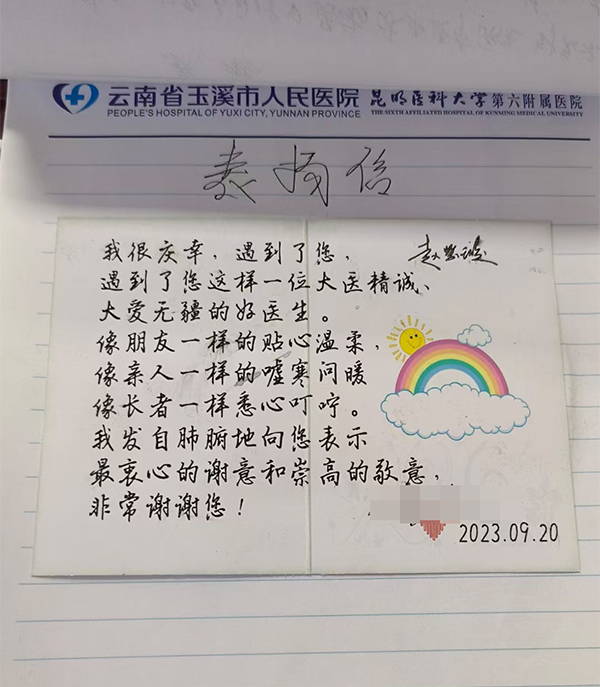 云南省玉溪市人民医院 昆明医科大学第六附属医院
PEOPLE'S HOSPITAL OF YUXI CITY, YUNNAN PROVINCE THE SIXTH AFFILIATED HOSPITAL OF KUNMING MEDICAL UNIVERSITY
表扬信
我很庆幸，遇到了您，
遇到了您这样一位大医精诚、
大爱无疆的好医生。
像朋友一样的贴心温柔，
像亲人一样的嘘寒问暖
像长者一样悉心叮咛。
我发自肺腑地向您表示
最衷心的谢意和崇高的敬意，
非常谢谢您！
2023.09.20